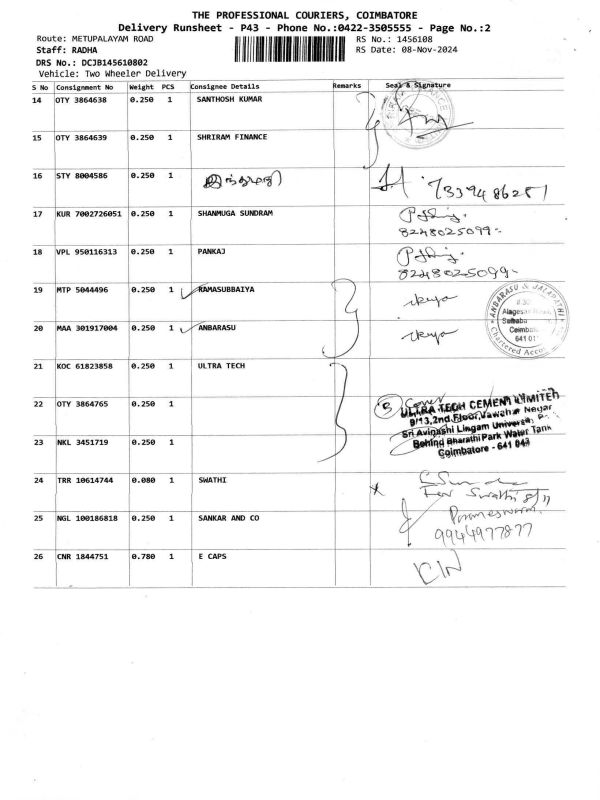 THE PROFESSIONAL COURIERS, COIMBATORE
Delivery Runsheet - P43 - Phone No.:0422-3505555 - Page No.:2
Route: METUPALAYAM ROAD RS No.: 1456108
Staff: RADHA RS Date: 08-Nov-2024
DRS No.: DCJB145610802
Vehicle: Two Wheeler Delivery
S No Consignment No Weight PCS Consignee Details Remarks Seal & Signature
14 OTY 3864638 0.250 1 SANTHOSH KUMAR
15 OTY 3864639 0.250 1 SHRIRAM FINANCE
16 STY 8004586 0.250 1 இந்துமதி 7339486251
17 KUR 7002726051 0.250 1 SHANMUGA SUNDRAM
8248025099
18 VPL 950116313 0.250 1 PANKAJ
8248025099
19 MTP 5044496 0.250 1 RAMASUBBAIYA
20 MAA 301917004 0.250 1 ANBARASU
ANBARASU & JALAPATHI
Coimbat
641 01
Chartered Acco
21 KOC 61823858 0.250 1 ULTRA TECH
22 OTY 3864765 0.250 1
3 Cover
ULTRA TECH CEMENT LIMITED
9/13, 2nd Floor, Vawahar Nagar
Sri Avinashi Lingam
Behind Bharathi Park Water Tank
Coimbatore - 641 043
23 NKL 3451719 0.250 1
24 TRR 10614744 0.080 1 SWATHI
For Swathi
25 NGL 100186818 0.250 1 SANKAR AND CO
Parameswarm
9944977877
26 CNR 1844751 0.780 1 E CAPS